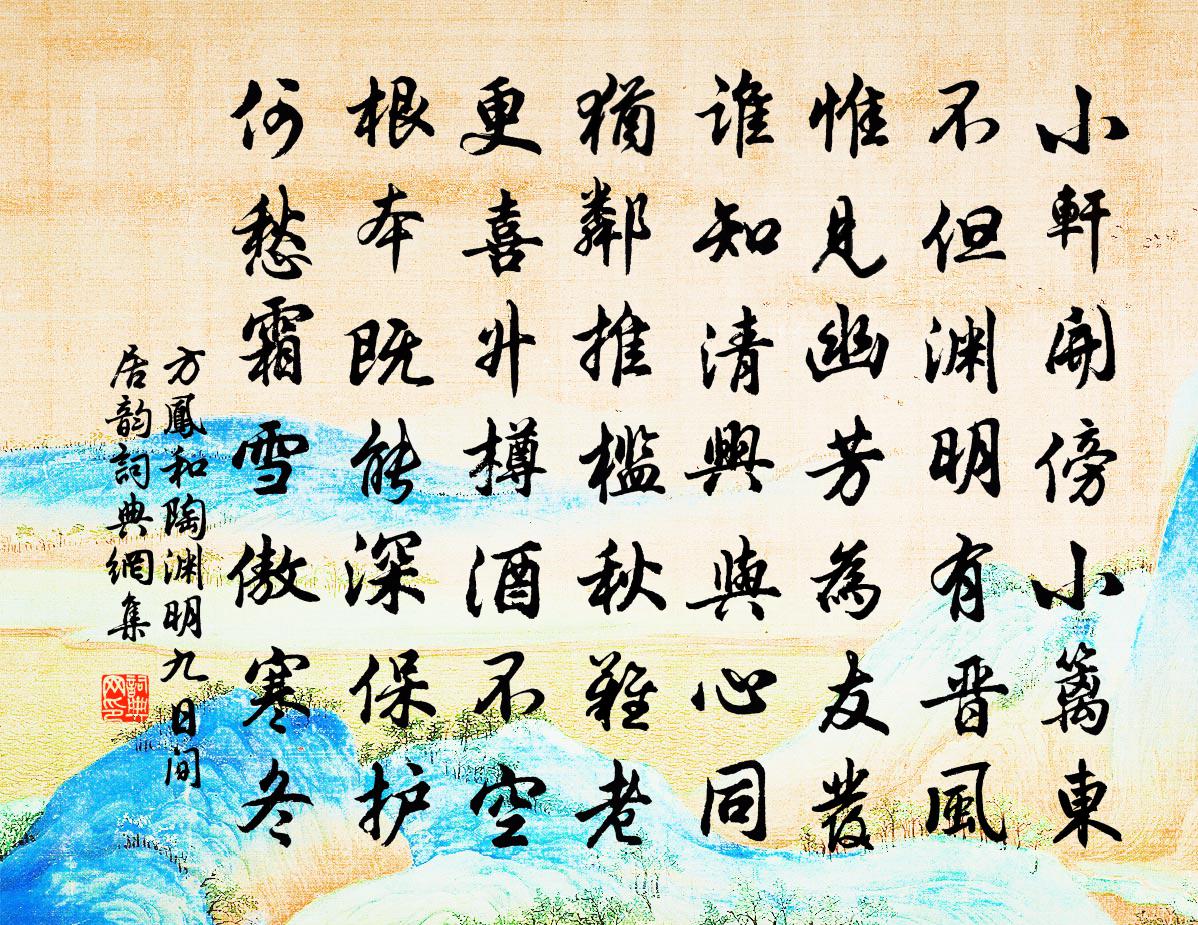 小軒開傍小籬東
不但渊明有晋風
惟見幽芳為友發
誰知清興與心同
猶鄰推檻秋難老
更喜升樽酒不空
根本既能深保护
何愁霜雪傲寒冬
方鳳和陶渊明九日閒
居韵詞典網集
詞典网印